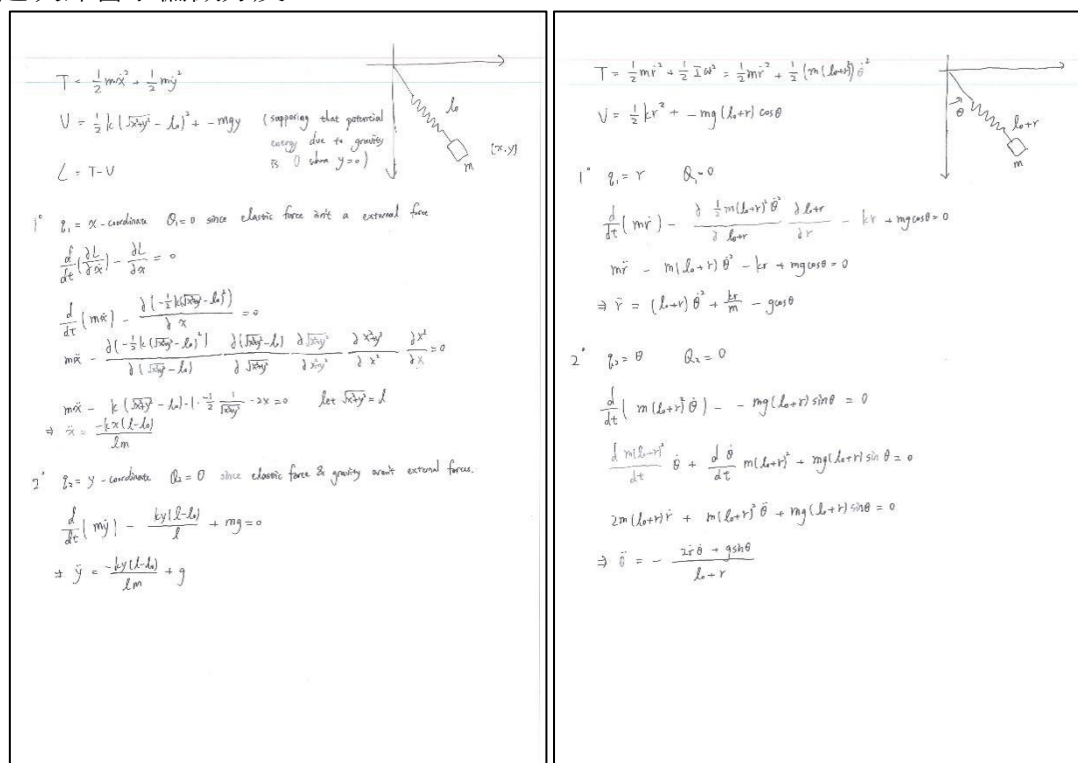 T = 1/2 mẋ² + 1/2 mẏ²
V = 1/2 k (√x²+y² - l₀)² + -mgy (supposing that potential energy due to gravity is 0 when y=0)
L = T-V
l₀
m
(x,y)
1° q₁ = x-coordinate Q₁=0 since elastic force isn't a external force
d/dt (∂L/∂ẋ) - ∂L/∂x = 0
d/dt (mẋ) - ∂(-1/2 k(√x²+y² - l₀)²)/∂x = 0
mẍ - ∂(-1/2 k(√x²+y² - l₀)²)/∂(√x²+y² - l₀) ∂(√x²+y² - l₀)/∂√x²+y² ∂√x²+y²/∂x²+y² ∂x²+y²/∂x² ∂x²/∂x = 0
mẍ - k(√x²+y² - l₀)·1·-1/2 1/√x²+y² ·2x = 0 let √x²+y² = l
⇒ ẍ = -kx(l-l₀)/lm
2° q₂ = y-coordinate Q₂ = 0 since elastic force & gravity aren't external forces.
d/dt (mẏ) - ky(l-l₀)/l + mg = 0
⇒ ÿ = -ky(l-l₀)/lm + g
T = 1/2 mṙ² + 1/2 Iω² = 1/2 mṙ² + 1/2 (m(l₀+r)²) θ̇²
V = 1/2 kr² + -mg(l₀+r) cosθ
θ
l₀+r
m
1° q₁ = r Q₁=0
d/dt (mṙ) - ∂ 1/2 m(l₀+r)² θ̇²/∂ l₀+r ∂ l₀+r/∂r - kr + mgcosθ = 0
mr̈ - m(l₀+r) θ̇² - kr + mgcosθ = 0
⇒ r̈ = (l₀+r) θ̇² + kr/m - gcosθ
2° q₂ = θ Q₂ = 0
d/dt (m(l₀+r)² θ̇) - -mg(l₀+r) sinθ = 0
d m(l₀+r)²/dt θ̇ + d θ̇/dt m(l₀+r)² + mg(l₀+r) sin θ = 0
2m(l₀+r)ṙ + m(l₀+r)² θ̈ + mg(l₀+r) sinθ = 0
⇒ θ̈ = - 2ṙθ̇ + gsinθ/l₀+r